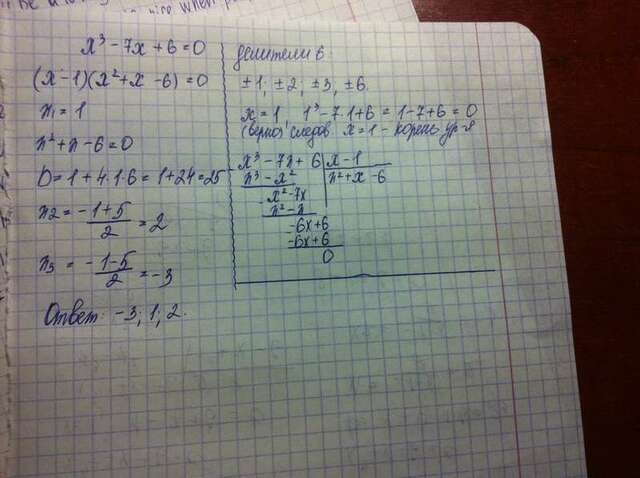 x³ - 7x + 6 = 0
(x - 1)(x² + x - 6) = 0
x₁ = 1
x² + x - 6 = 0
D = 1 + 4·1·6 = 1 + 24 = 25
x₂ = -1+5/2 = 2
x₃ = -1-5/2 = -3
Ответ: -3; 1; 2.
делители 6
±1; ±2; ±3; ±6.
x = 1, 1³ - 7·1 + 6 = 1 - 7 + 6 = 0
(верно) следов. x = 1 - корень ур-я
x³ - 7x + 6 | x - 1
x³ - x² | x² + x - 6
x² - 7x
x² - x
-6x + 6
-6x + 6
0